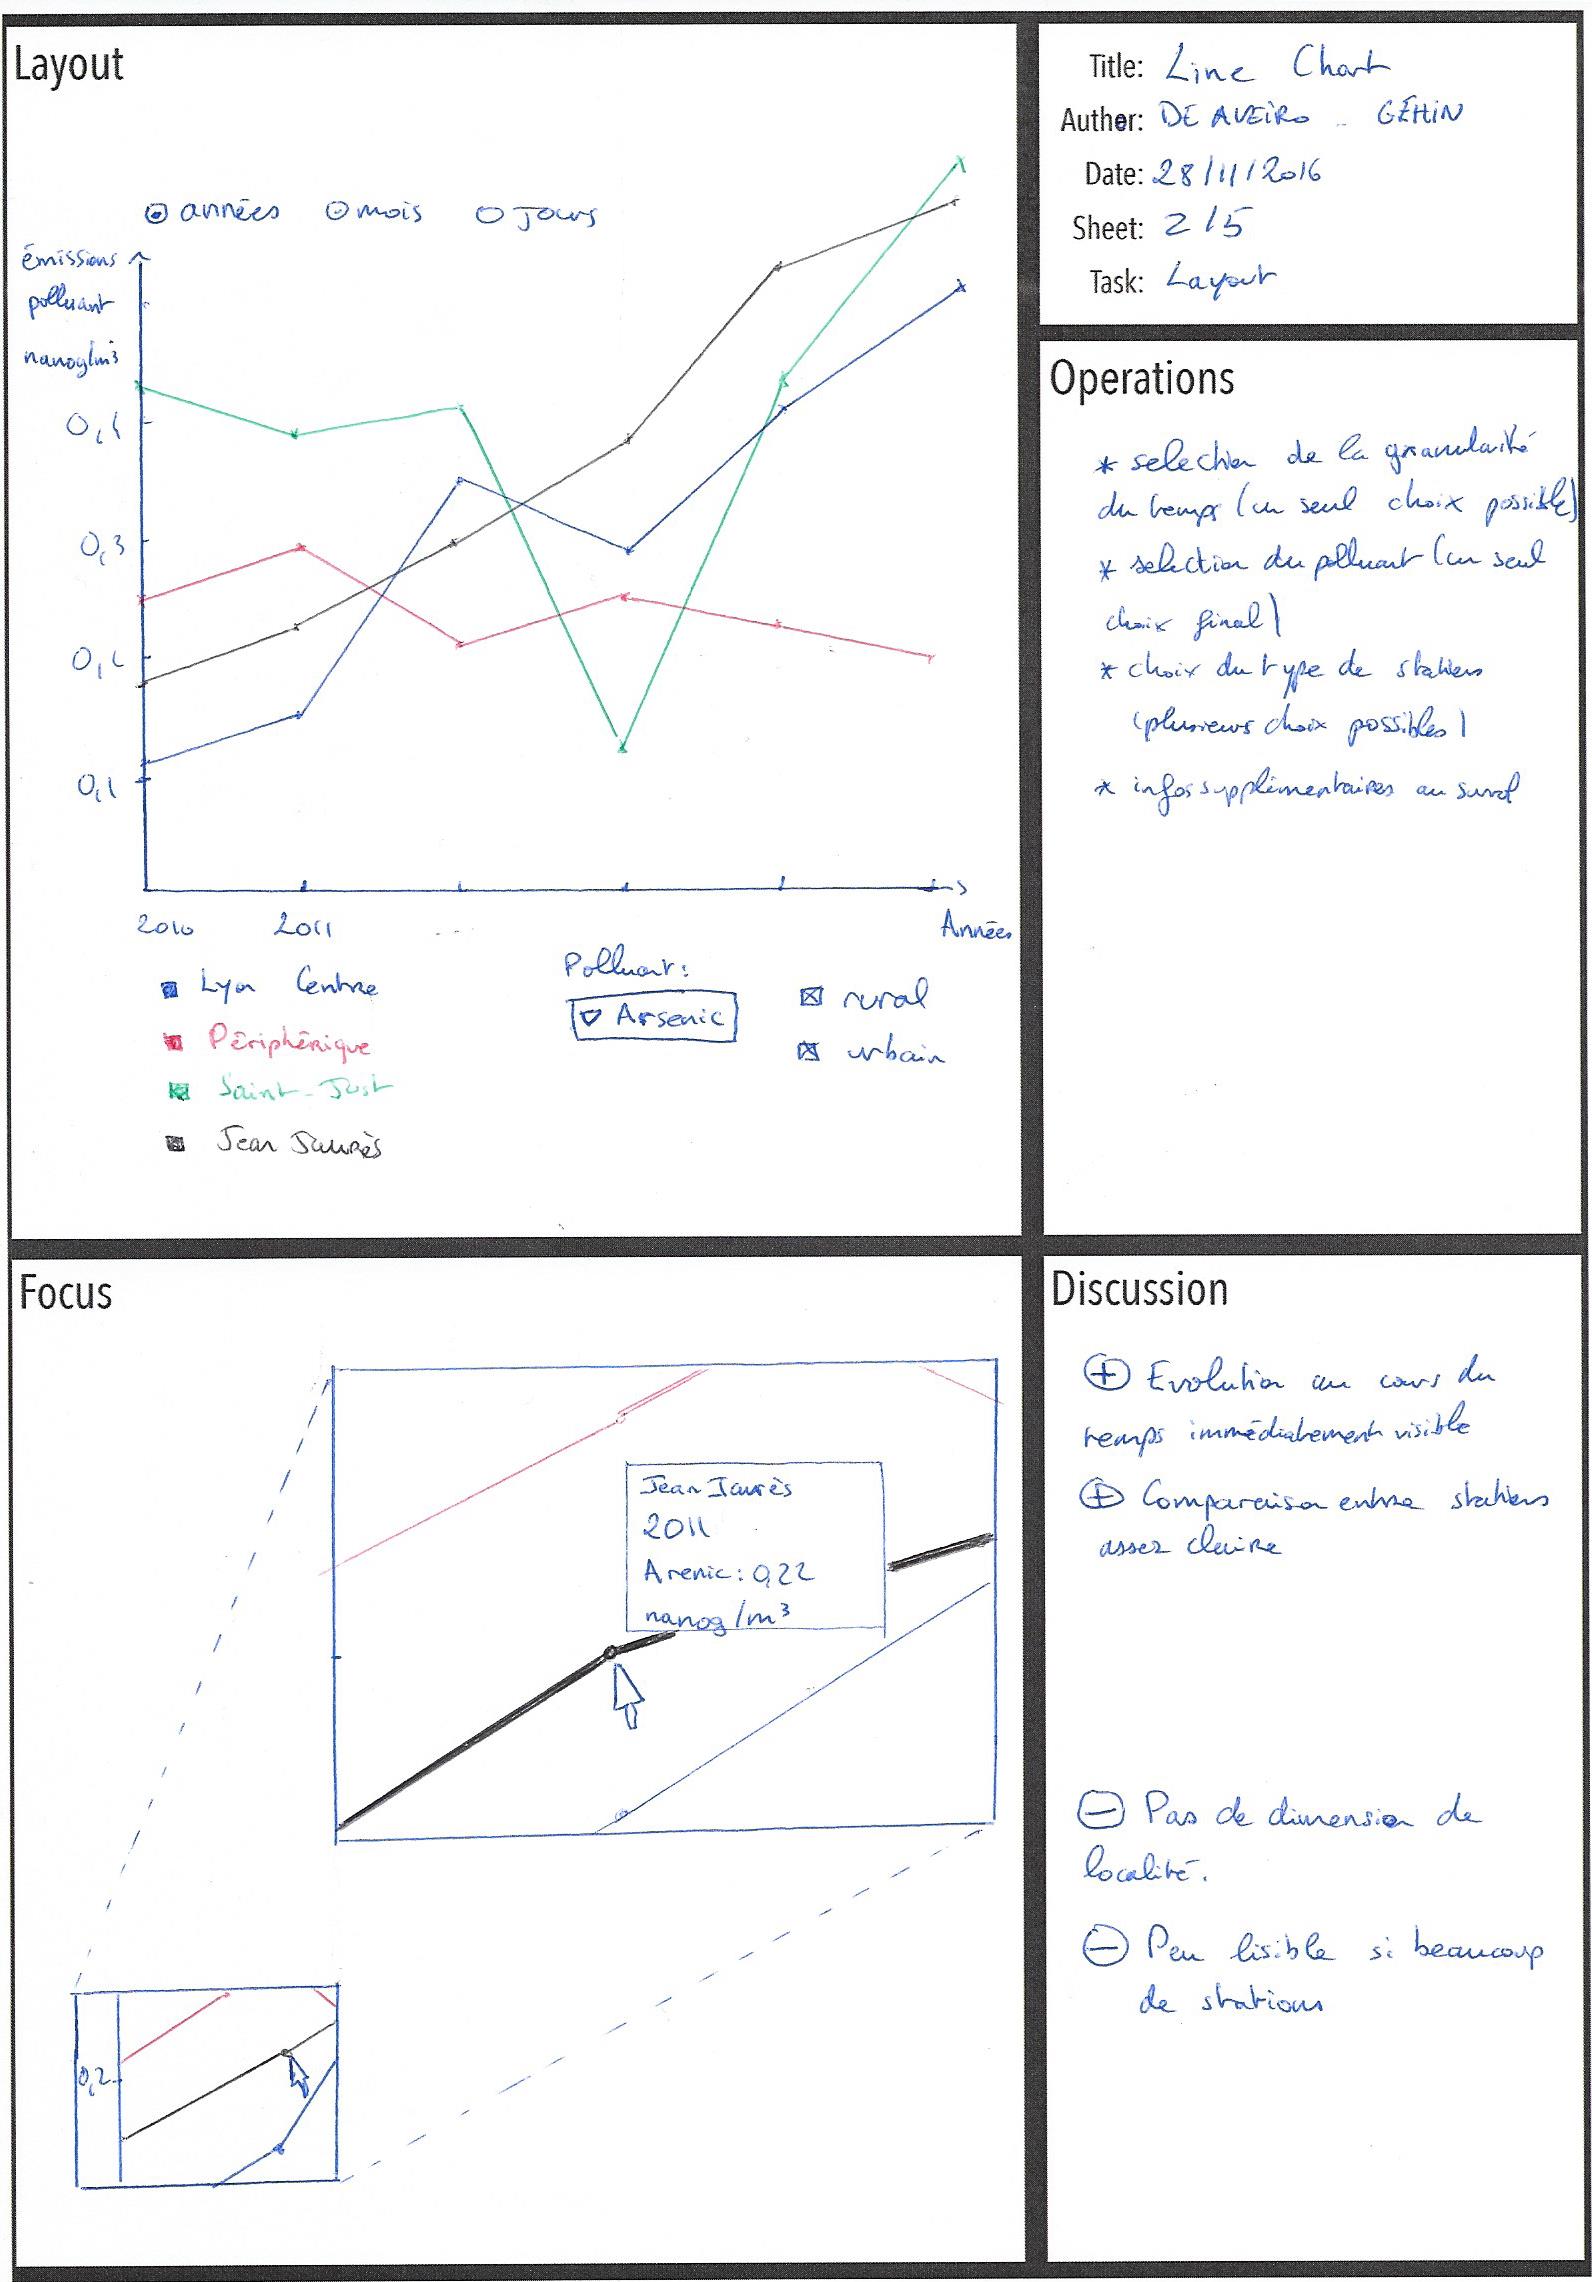 Layout
années mois Jours
émissions
polluant
nanog/m³
0,4
0,3
0,2
0,1
2010 2011 ... Années
Lyon Centre
Périphérique
Saint-Just
Jean Jaurès
Polluant:
Arsenic
rural
urbain
Title: Line Chart
Author: DE AVEIRO - GÉHIN
Date: 28/11/2016
Sheet: 2/5
Task: Layout
Operations
* selection de la granularité
du temps (un seul choix possible)
* selection du polluant (un seul
choix final)
* choix du type de stations
(plusieurs choix possibles)
* infos supplémentaires au survol
Focus
Jean Jaurès
2011
Arenic: 0,22
nanog/m³
0,2
Discussion
+ Evolution au cours du
temps immédiatement visible
+ Comparaison entre stations
assez claire
- Pas de dimension de
localité.
- Peu lisible si beaucoup
de stations